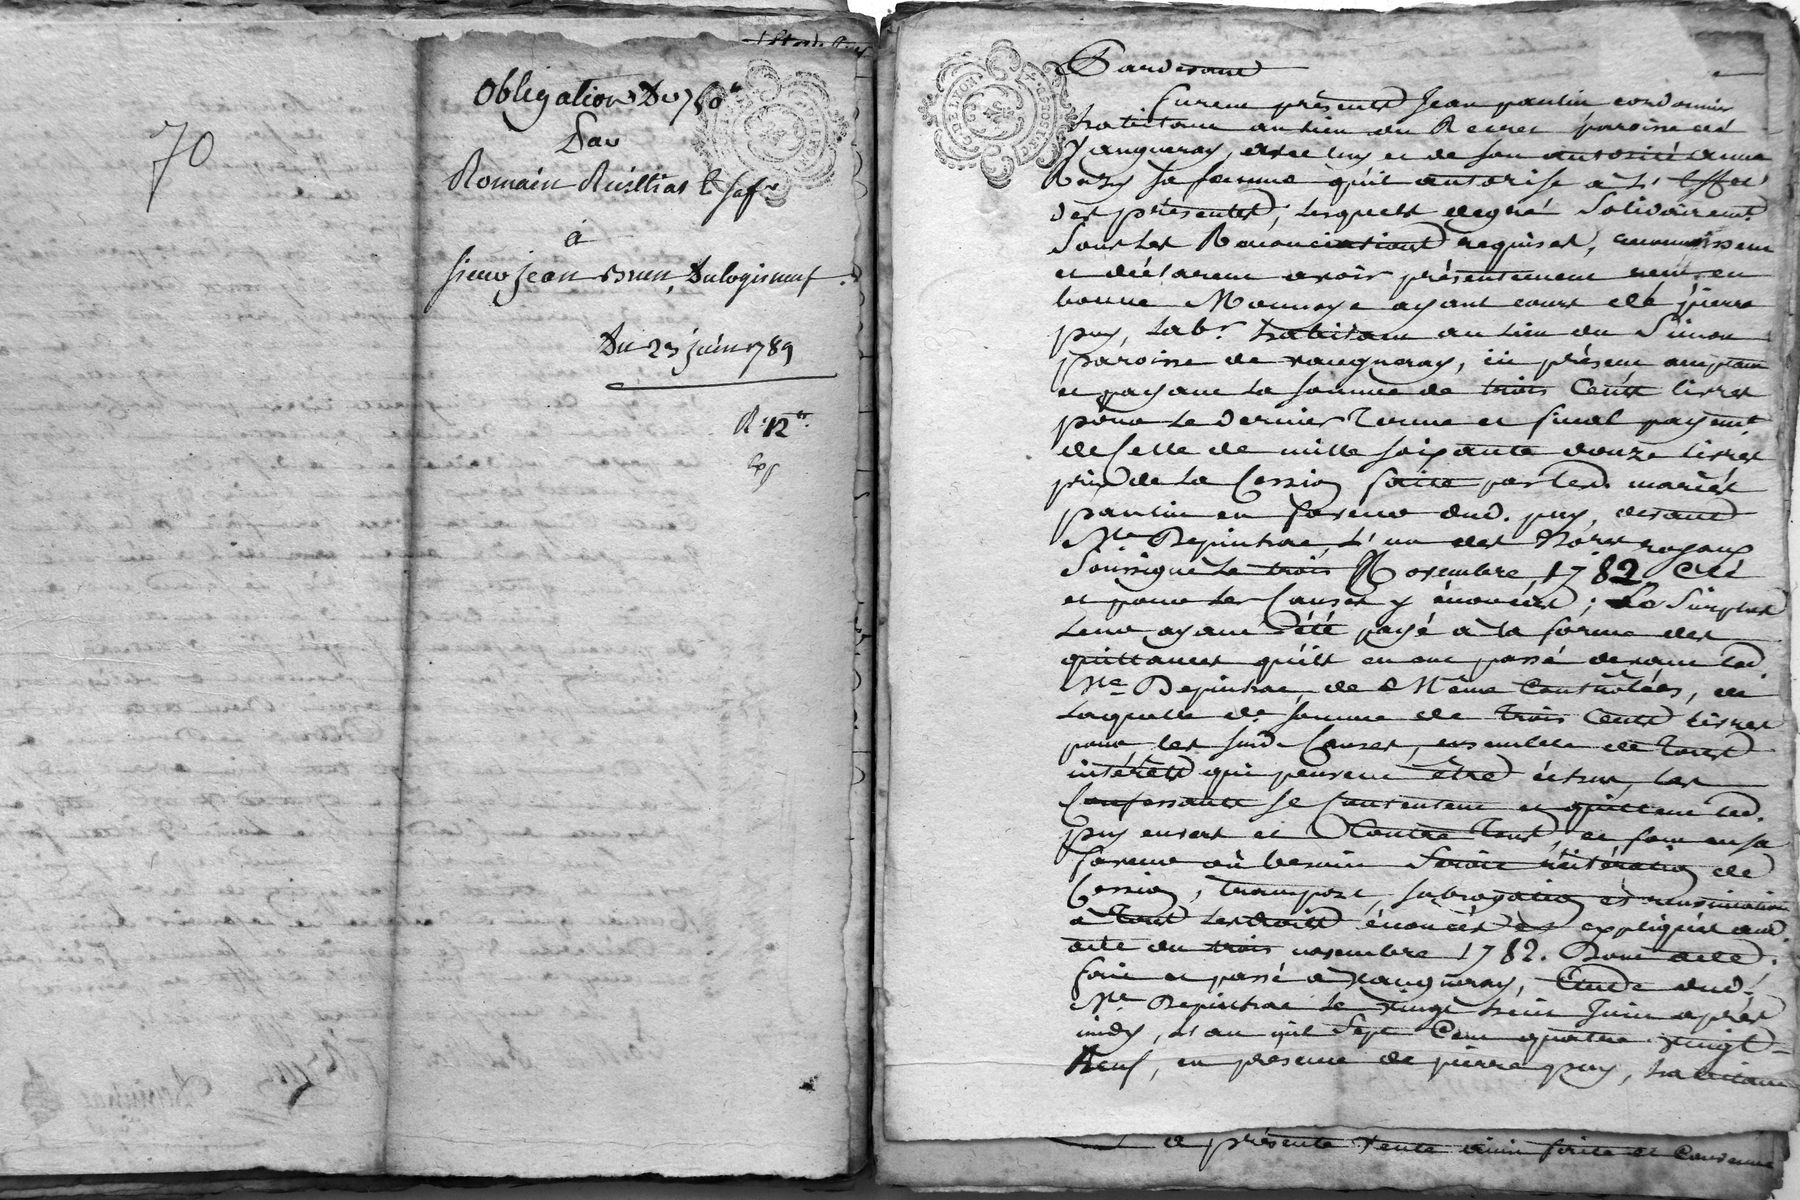 70
Obligation Du 750
Par
Romain
à
sieur jean brun, Dulogisneuf
Du 23 juin 1789
R. 12
Exp
Pardevant
furent présents Jean pantin cordonnier
habitant au lieu du paroisse de
Vaugneray, avec luy et de son autorité anne
sa femme qu'il autorise à L'effet
des présentes, lesquels de gré Solidairemt
Sous les Renonciations requises,
et déclarent avoir présentement reçu en
bonne Monnoye ayant cours de pierre
puy, labr. habitant au lieu du Simon
paroisse de vaugneray, ici présent acceptant
et payant la somme de trois Cents livres
pour le dernier Terme et final payemt
de Celle de mille soixante douze livres
prix de La Cession faite par lesd. mariés
pantin en faveur dud. puy, devant
Me Depinhac, L'un des Nores royaux
Soussigné Le trois Novembre 1782,
et pour les Causes y énoncées; Le Surplus
leur ayant été payé à la forme des
quittances qu'ils en ont passé devant led.
Me Depinhac, de Même Controlées, de
laquelle de. somme de trois Cents livres
pour les susd. Causes, ensemble de tous
intérêts qui peuvent être échus, les
Confessants se Contentent et quittent led.
puy envers et Contre tous, et font en sa
faveur où besoin Seroit réitération de
Cession, transport, subrogation et
à tous les droits énoncés et expliqués aud.
acte du trois novembre 1782. Dont acte.
fait et passé a vaugneray, Etude dud.
Me Depinhac Le Vingt trois Juin après
midy, L'an mil Sept Cent quatre vingt
Neuf, en présence de pierre puy, habitant
et présente vente ainsi faite et Convenue